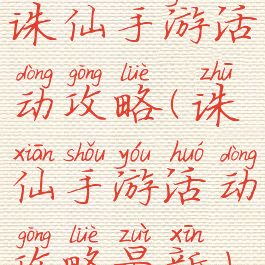 诛仙手游活
dòng gōng lüè zhū
动攻略(诛
xiān shǒu yóu huó dòng
仙手游活动
gōng lüè zuì xīn
攻略最新)